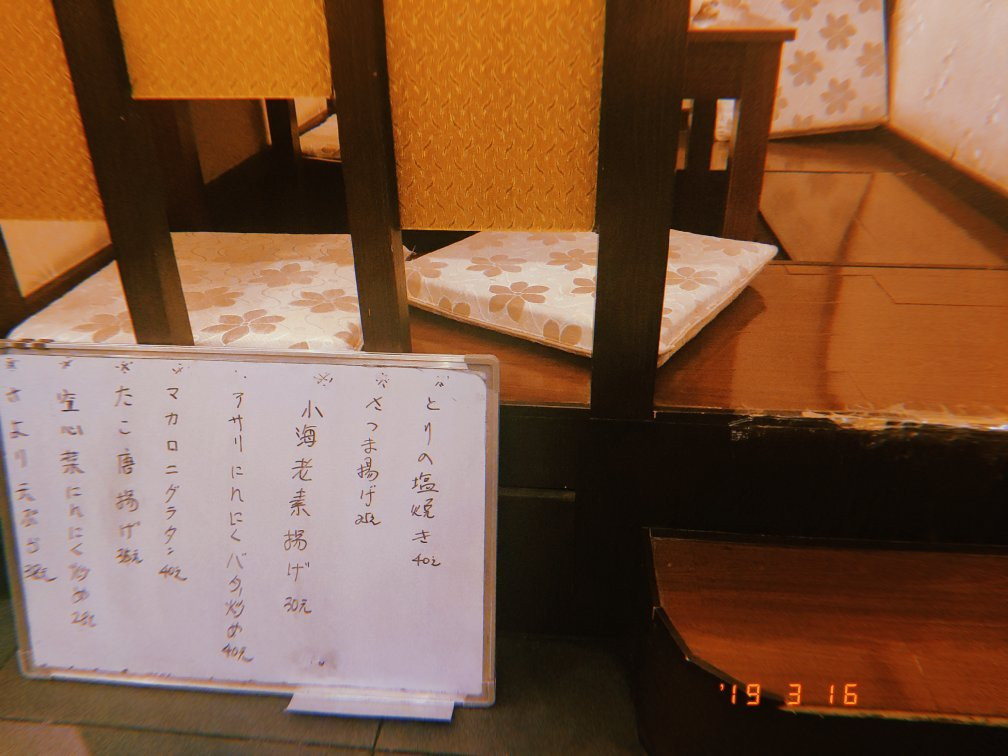 ※とりの塩焼き 40元
※さつま揚げ 25元
※小海老素揚げ 30元
アサリにんにくバター炒め 40元
※マカロニグラタン 40元
※たこ唐揚げ 35元
※空心菜にんにく炒め 28元
※さより天ぷら
'19 3 16